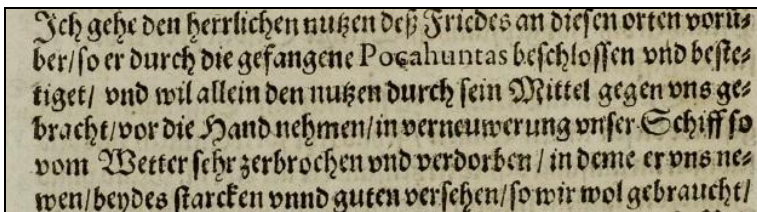 Ich gehe den herrlichen nutzen deß Friedes an diesen orten vorü⸗
ber/ so er durch die gefangene Pocahuntas beschlossen vnd beste⸗
tiget/ vnd wil allein den nutzen durch sein Mittel gegen vns ge⸗
bracht/ vor die Hand nehmen/ in verneuwerung vnser Schiff so
vom Wetter sehr zerbrochen vnd verdorben/ in deme er vns ne⸗
wen/ beydes starcken vnnd guten versehen/ so wir wol gebraucht/